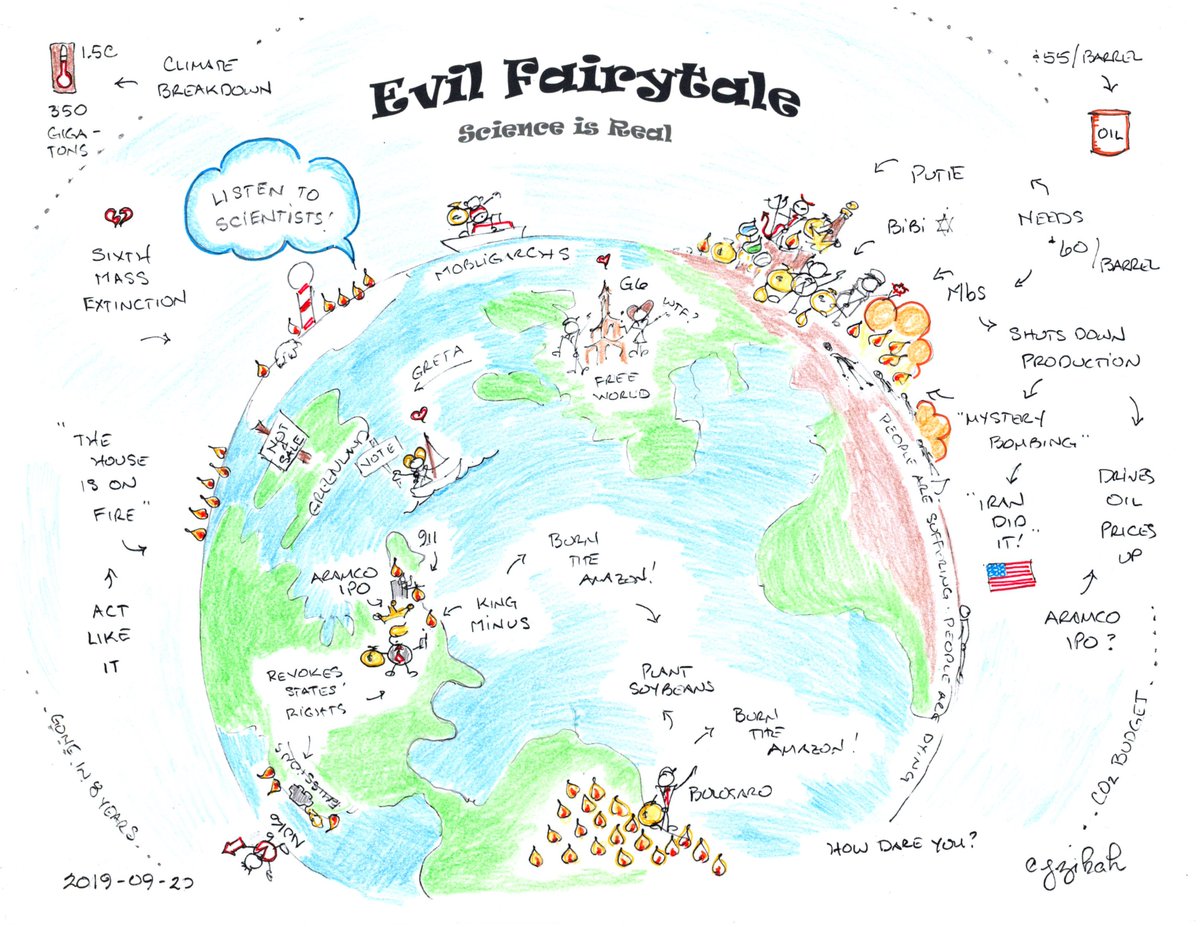 Evil Fairytale
Science is Real
1.5C
350
GIGA-
TONS
CLIMATE
BREAKDOWN
LISTEN TO
SCIENTISTS!
SIXTH
MASS
EXTINCTION
"THE
HOUSE
IS ON
FIRE"
ACT
LIKE
IT
GONE IN 8 YEARS
2019-09-20
MOBLIGARCHS
G6
WTF?
FREE
WORLD
GRETA
NOT 4
SALE
GREENLAND
NOTE
911
ARAMCO
IPO
KING
MINUS
BURN
THE
AMAZON!
REVOKES
STATES'
RIGHTS
EMISSIONS
PLANT
SOYBEANS
BURN
THE
AMAZON!
BOLOSARO
$55/BARREL
OIL
PUTIE
BIBI
MbS
NEEDS
$60/
BARREL
SHUTS DOWN
PRODUCTION
"MYSTERY
BOMBING"
"IRAN
DID
IT!"
DRIVES
OIL
PRICES
UP
ARAMCO
IPO?
PEOPLE ARE SUFFERING. PEOPLE ARE DYING
HOW DARE YOU?
CO2 BUDGET